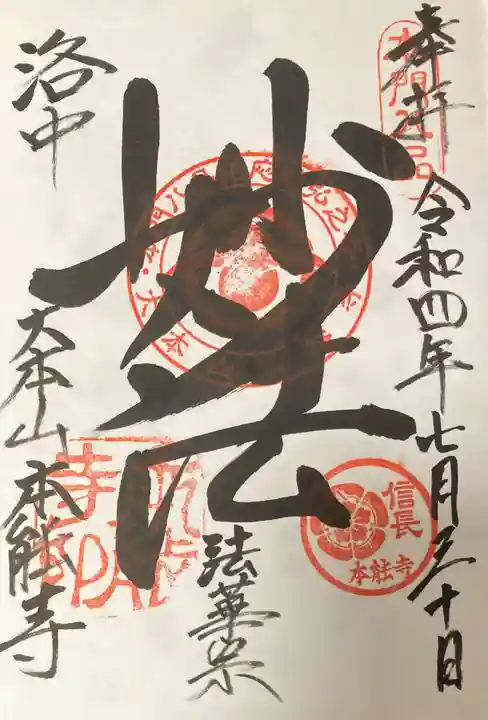 奉拝
令和四年七月三十日
妙法
法華宗
洛中
大本山本能寺
信長
本能寺